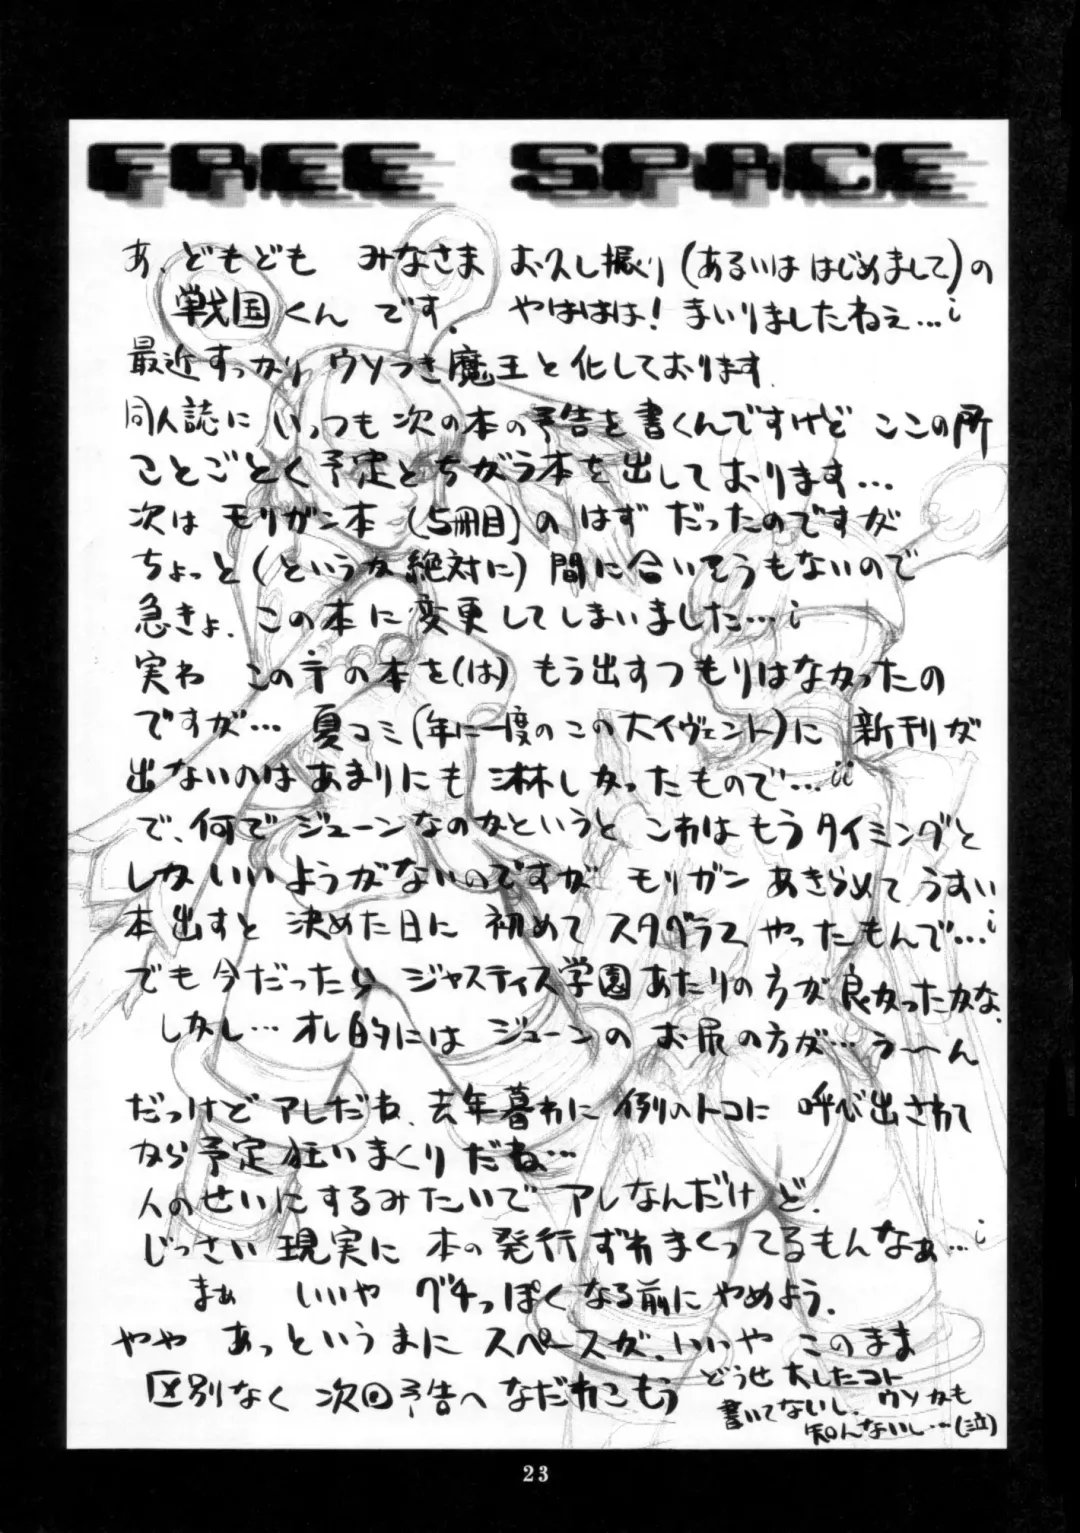 FREE SPACE
あ、どもども みなさま お久し振り(あるいは はじめまして)の
戦国くん です. やははは! まいりましたねぇ…i
最近すっかり ウソつき魔王と化しております.
同人誌に いっつも 次の本の予告を書くんですけど ここの所
ことごとく予定とちがう本を出しております…
次は モリガン本 (5冊目)の はず だったのですが
ちょっと(というか絶対に)間に合いそうもないので
急きょ、この本に変更してしまいました…i
実わ この手の本を(は) もう出すつもりはなかったの
ですが… 夏コミ(年に一度のこの大イヴェント)に 新刊が
出ないのは あまりにも 淋しかったもので…ii
で、何で ジューンなのかというと これは もう タイミングと
しか いい ようがないのですが モリガン あきらめて うすい
本出すと 決めた日に 初めて スタグラ2 やったもんで…i
でも今だったら ジャスティス学園あたりの方が良かったかな.
しかし… オレ的には ジューンの お尻の方が… う〜ん
だっけど アレだね、去年暮れに 例のトコに 呼び出されて
から予定 狂いまくりだね…
人のせいにするみたいで アレなんだけど.
じっさい 現実に 本の発行ずれまくってるもんなぁ…i
まぁ いいや グチっぽくなる前にやめよう.
やや あっというまに スペースが. いいや このまま
区別なく 次回予告へ なだれこもう
どうせ大したコト
書いてないし. ウソかも
知んないし…(泣)
23